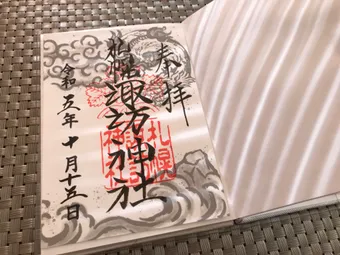 奉拝
札幌諏訪神社
令和五年十月十五日